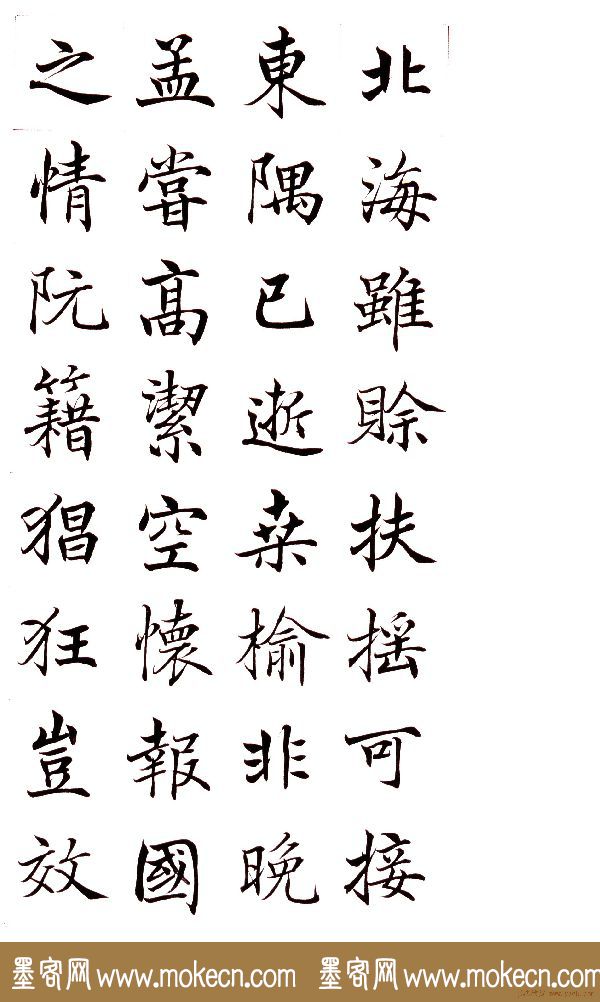 北海雖賒扶摇可接
東隅已逝桒榆非晚
孟嘗高潔空懷報國
之情阮籍猖狂豈效
墨客网 www.mokecn.com 墨客网 www.mokecn.com